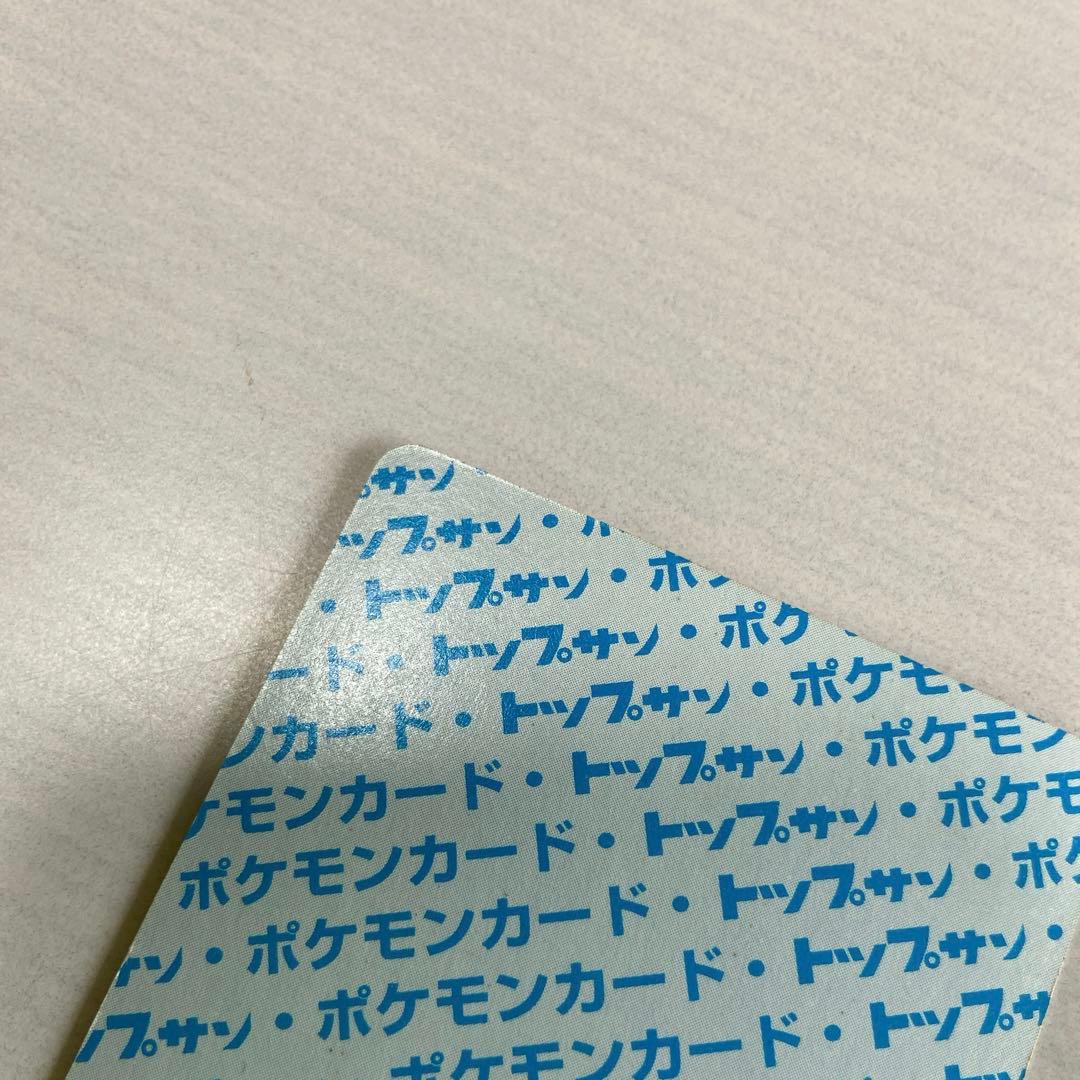 サン
ップサン・ポ
・トップサン・ポケ
ード・トップサン・ポケ
ンカード・トップサン・ポケモ
ケモンカード・トップサン・ポケモン
ポケモンカード・トップサン・ポケモ
サン・ポケモンカード・トップサン・ポケ
プサン・ポケモンカード・トップサン・
ポケモンカード・トップサ